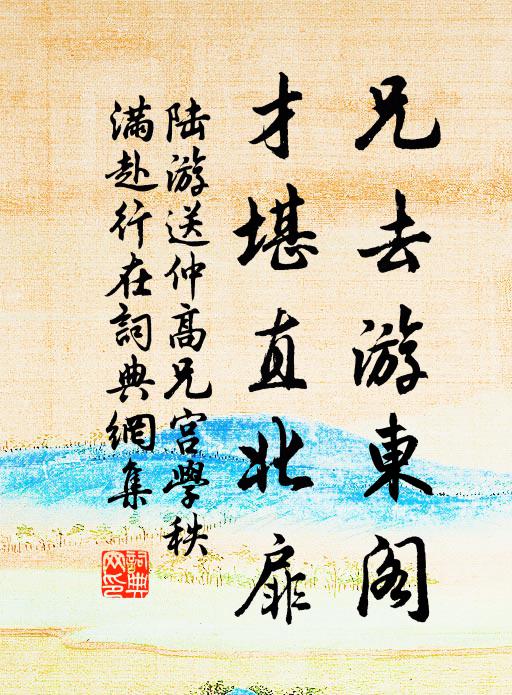 兄去游東阁
才堪直北扉
陆游送仲高兄宫學秩
满赴行在詞典網集
詞典